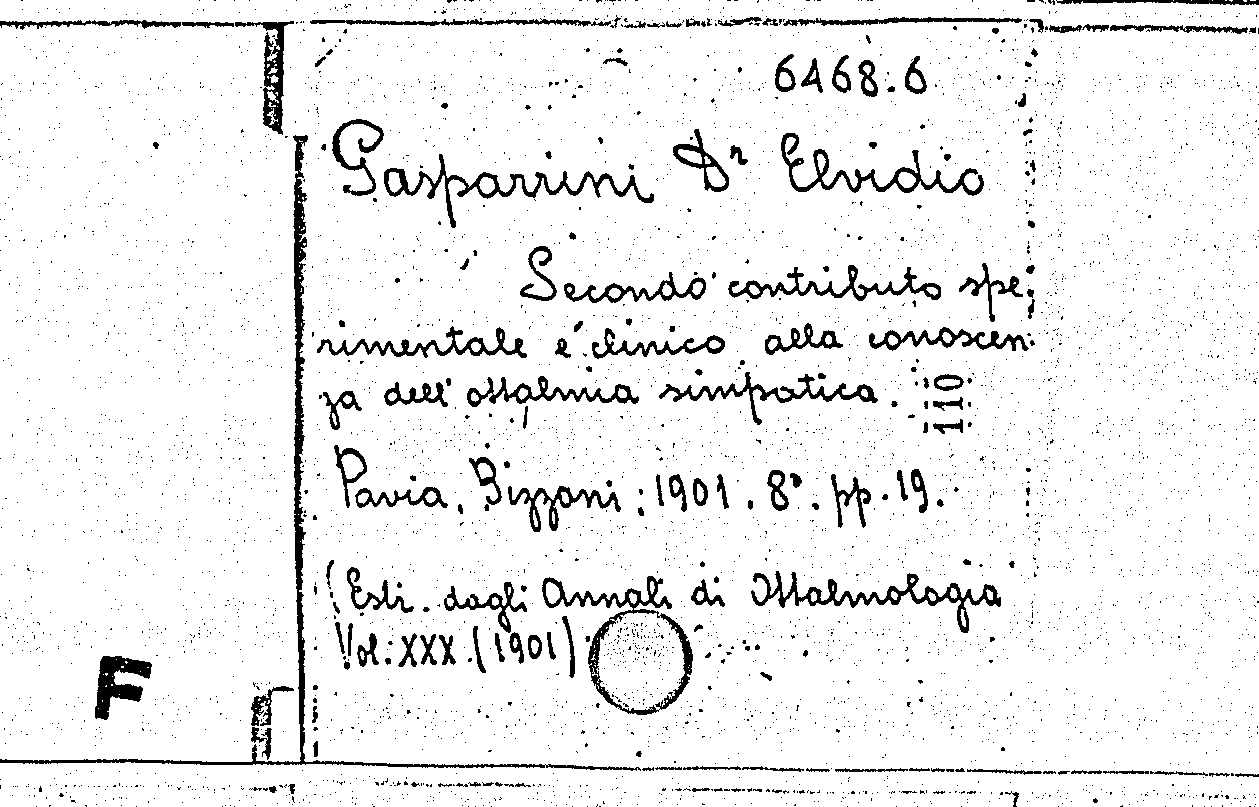 6468.6
Gasparrini Dr Elvidio
Secondo contributo spe-
rimentale e clinico alla conoscen-
za dell'ottalmia simpatica.
110
Pavia, Bizzoni: 1901. 8°. pp. 19.
(Estr. dagli Annali di Ottalmologia
Vol: XXX. (1901)
F